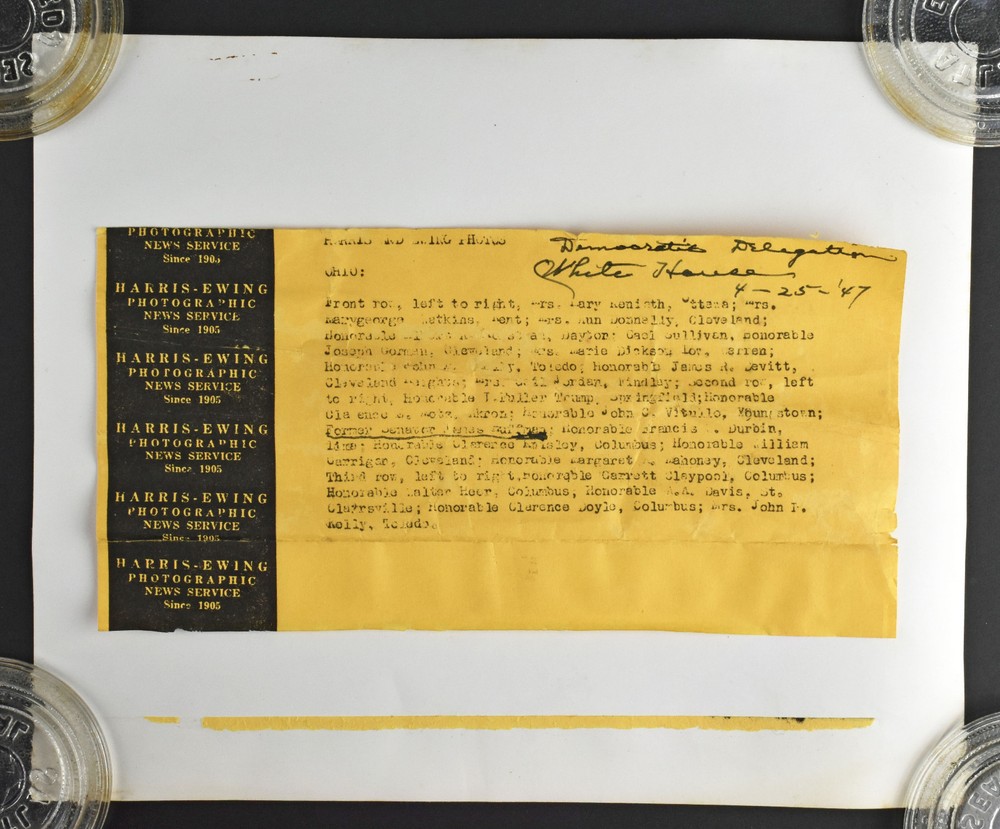 PHOTOGRAPHIC
NEWS SERVICE
Since 1905
HARRIS-EWING
PHOTOGRAPHIC
NEWS SERVICE
Since 1905
HARRIS-EWING
PHOTOGRAPHIC
NEWS SERVICE
Since 1905
HARRIS-EWING
PHOTOGRAPHIC
NEWS SERVICE
Since 1905
HARRIS-EWING
PHOTOGRAPHIC
NEWS SERVICE
Since 1905
HARRIS-EWING
PHOTOGRAPHIC
NEWS SERVICE
Since 1905
PHOTOS
Democratic Delegation
White House
4-25-'47
OHIO:
Front row, left to right, Mrs. Mary Mrs.
Marygeorge Kent; Mrs. Ann Donnelly, Cleveland;
Honorable Dayton; Gael Sullivan, Honorable
Joseph Gorman, Cleveland; Mrs. Marie Dickson Warren;
Honorable John Toledo, Honorable James R. Devitt,
Cleveland Heights; Mrs. Jordan, Findley; Second row, left
to right, Honorable Fuller Trump, Springfield; Honorable
Clarence Akron; Honorable John C. Vitullo, Youngstown;
Former Senator Huffman; Honorable Francis Durbin,
Lima; Honorable Clarence Columbus; Honorable William
Corrigan, Cleveland; Honorable Margaret Mahoney, Cleveland;
Third row, left to right, Honorable Garrett Claypool, Columbus;
Honorable Walter Heer, Columbus, Honorable A.A. Davis, St.
Clairsville; Honorable Clarence Doyle, Columbus; Mrs. John P.
Kelly, Toledo.